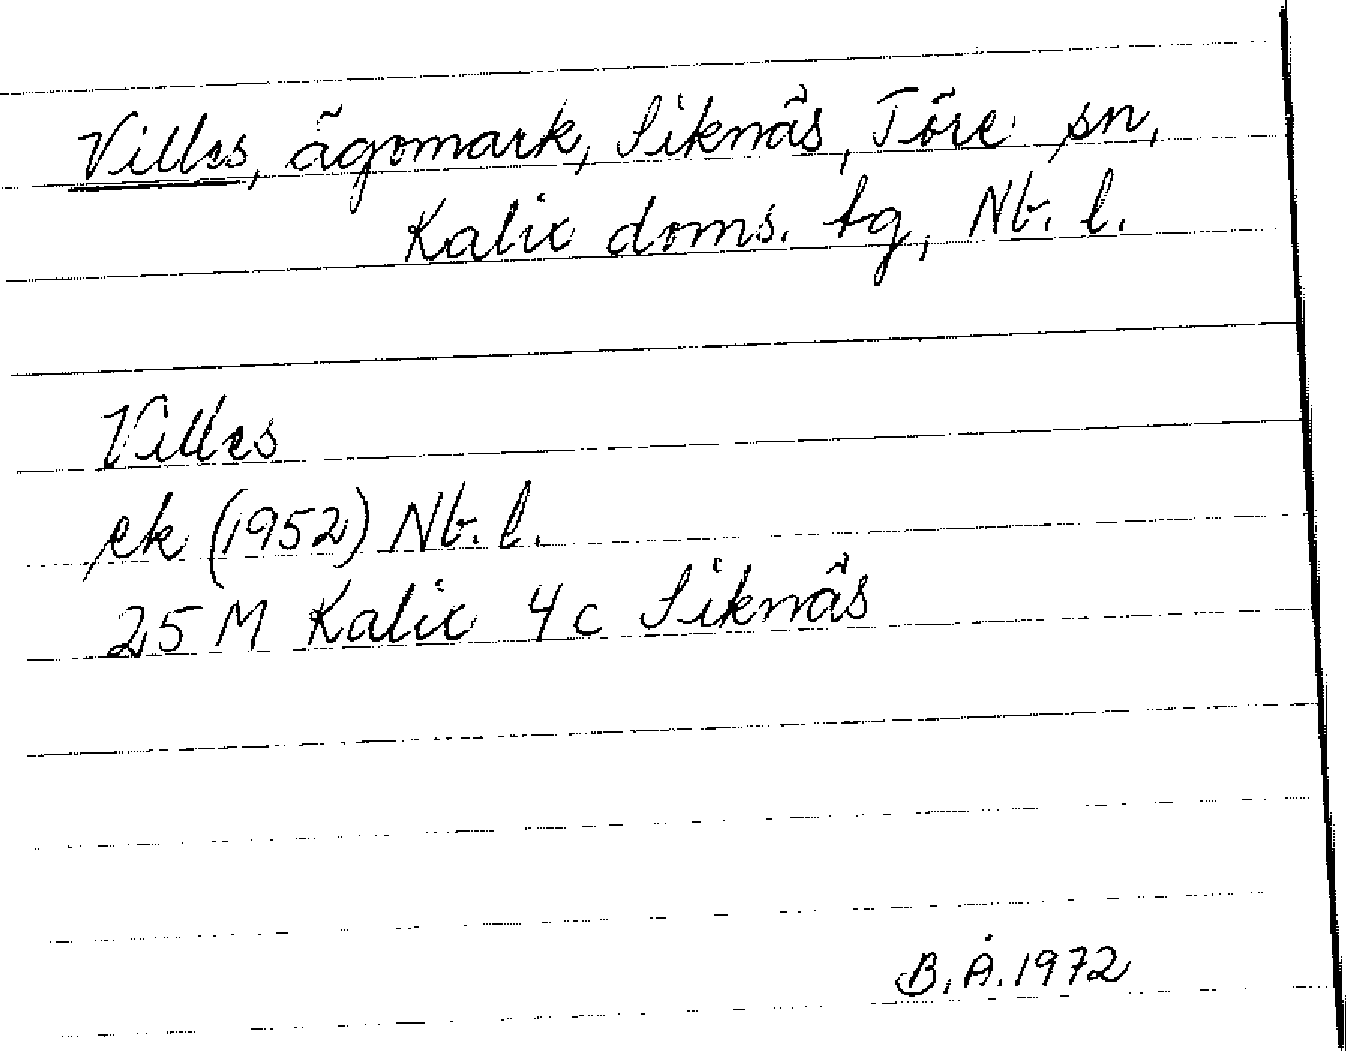 Villes, ägomark, Siknäs, Töre sn,
Kalix doms. tg, Nb. l.
Villes
ek (1952) Nb. l.
25 M Kalix 4c Siknäs
B. Å. 1972